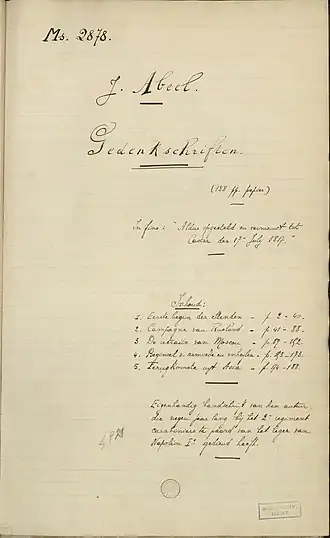 Ms. 2878.
J. Abeel.
Gedenkschriften.
(188 ff. papier)
In fine: "Aldus opgesteld en vernieuwt tot
den 17n July 1817."
Inhoud:
1. Eerste begin der Ellenden - p. 2 - 40.
2. Campagne van Rusland - p. 41 - 88.
3. De retraite van Moscou - p. 89 - 152.
4. Beginsel - p. 152 - 173.
5. Terugkomste uyt Asia - p. 174 - 188.
Eigenhandig handschrift van den auteur,
die negen jaar lang bij het 2e regiment
carabiniers te paard van het leger van
Napoleon Ie gediend heeft.
GENT